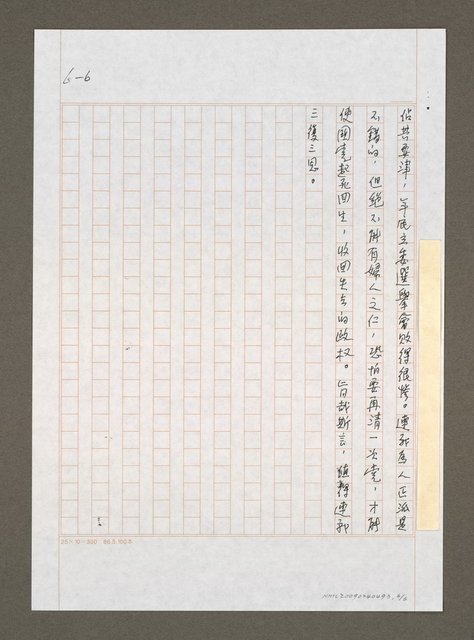 6-6
佔其要津，羊民立委選舉會敗得很慘。連郝為人正派是
不錯的，但絕不能有婦人之仁，恐怕要再清一次党，才能
使國党起死回生，收回失去的政权。旨哉斯言，值得連郝
三復三思。
25×10=250 86.5.100本
NMTL20090240493, 6/6